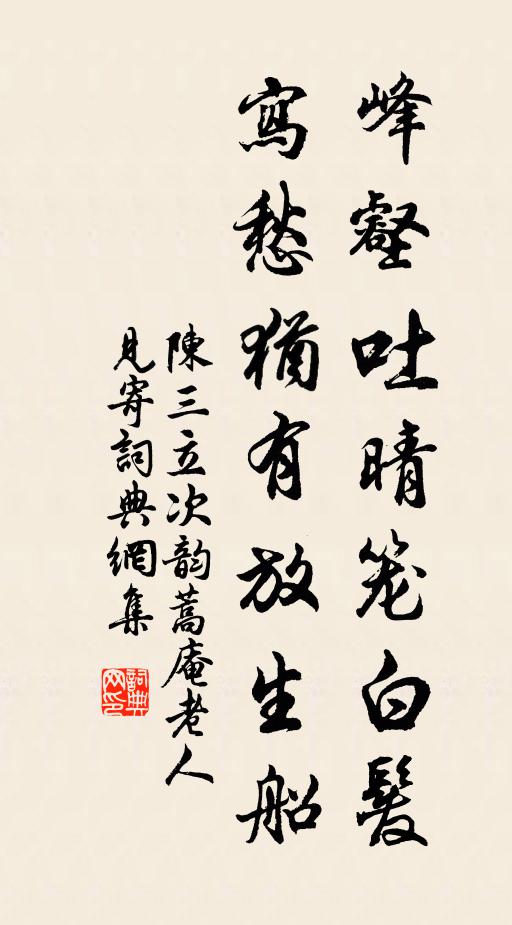 峰壑吐晴笼白髮
寫愁猶有放生船
陳三立次韵蒿庵老人
見寄詞典網集
詞典网印